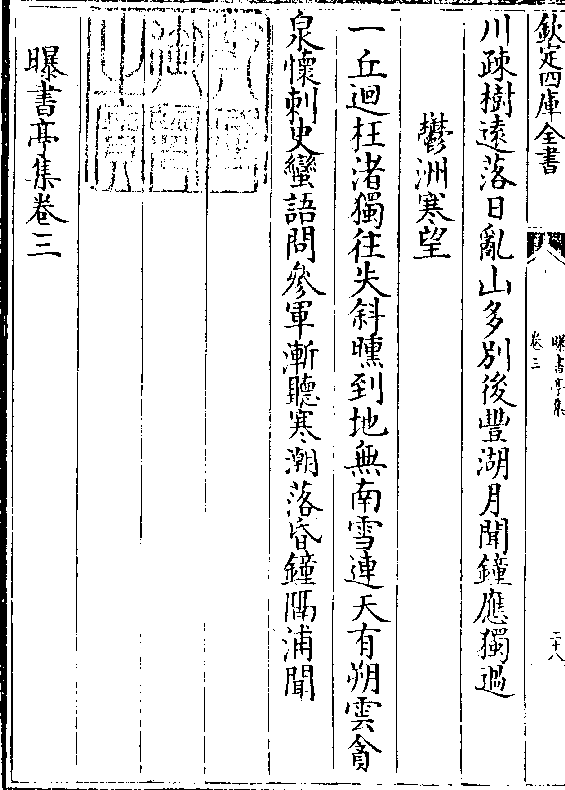 欽定四庫全書
曝書亭集
卷三
二十八
川疎樹遠落日亂山多別後豐湖月聞鐘應獨過
鬱洲寒望
一丘迴枉渚獨往失斜曛到地無南雪連天有朔雲貪
泉懷刺史蠻語問參軍漸聽寒潮落昏鐘隔浦聞
曝書亭集卷三